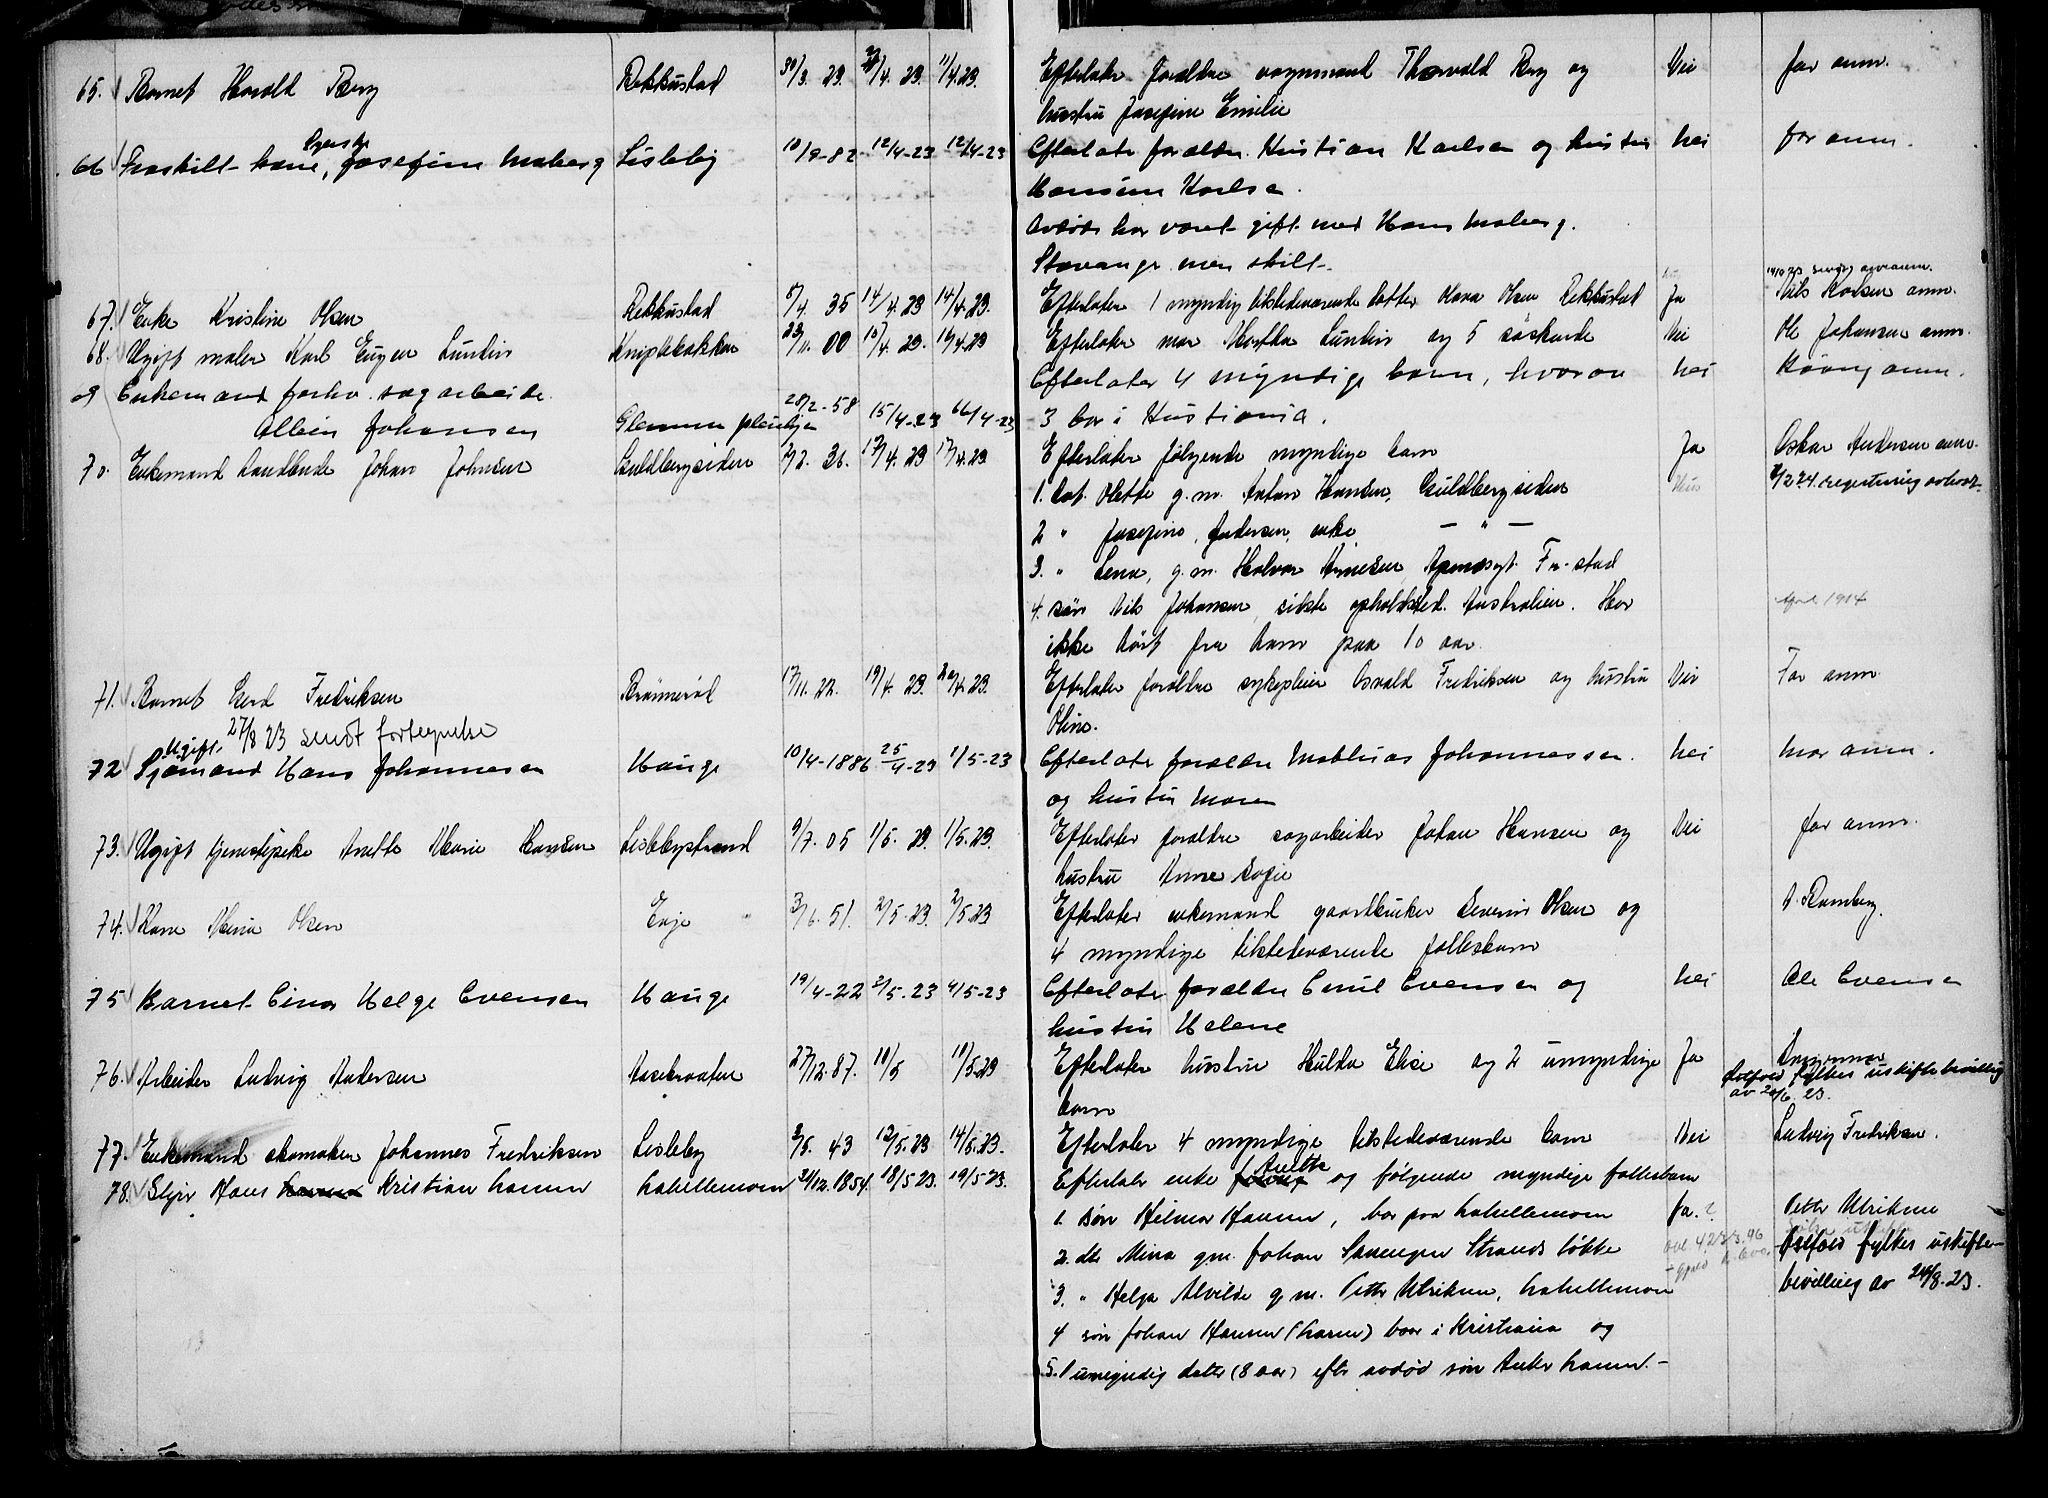 65. Barnet Harald Berg Rekkustad 30/3. 23. /4. 23. 11/4.23. Efterlater forældre vognmand Thorvald Berg og Nei far anm.
hustru Josefine Emilie
66 Fraskilt kone, Josefine Moberg Lisleby 10/9-82 12/4-23 12/4-23 Efterlater forældre Kristian Karlsen og hustru Nei far anm.
Hansine Karlsen.
Avdøde har været gift med Hans Moberg.
Stavanger men skilt.
67. Enke Kristine Olsen Rekkustad 5/4. 35 14/4.23 14/4.23. Efterlater 1 myndig tilstedeværende datter Olava Olsen Rekkustad Ja Nils Karlsen anm.
68. Ugift maler Karl Eugen Lundin Kniplebakken 23/11. 00 15/4. 23. 16/4.23 Efterlater mor Martha Lundin og 5 søskende Nei Ole Johansen anm.
69 Enkemand forhv. sagarbeider Efterlater 4 myndige barn, hvorav Nei anm.
Albin Johansen Glemmen pleiehjem 28/2-58 15/4-23 16/4-23 3 bor i Kristiania.
70. Enkemand Johan Johnsen Guldbergsiden 2/2. 36. 17/4.23 17/4.23. Efterlater følgende myndige barn Ja Oskar Andersen anm.
1. dat. Olette g.m. Anton Hansen, Guldbergsiden
2 " Josefine Andersen, enke — " —
3. " Lena, g.m. Halvor Arnesen, Fr-stad
4. søn Nils Johansen, sidste opholdsted Australien. Har april 1914
ikke hørt fra ham paa 10 aar.
71. Barnet Gerd Fredriksen Brønnerød 17/11. 22. 19/4. 23 20/4.23. Efterlater forældre sykepleier Osvald Fredriksen og hustru Nei Far anm.
27/8 23 sendt fortegnelse Oline.
Ugift
72 Sjømand Hans Johannesen Hauge 10/4-1886 25/4-23 1/5-23 Efterlater forældre Mathias Johannessen. Nei mor anm.
og hustru Maren
73. Ugift tjenestepike Anette Marie Hansen Lislebystrand 9/7. 05 1/5. 23. 1/5.23. Efterlater forældre sagarbeider Johan Hansen og Nei far anm.
hustru Anne Sofie
74. Kone Mina Olsen Evje 3/6. 51. 2/5. 23. 2/5.23 Efterlater enkemand gaardbruker Severin Olsen og Ramberg.
4 myndige tilstedeværende fællesbarn
75 Barnet Einar Helge Evensen Hauge 19/4-22 2/5.23 4/5-23 Efterlater forældre Emil Evensen og Nei Ole Evensen
hustru Helene
76. Arbeider Ludvig Andersen Aasebraaten 27/12.87. 10/5 10/5.23 Efterlater hustru Hulda Elise og 2 umyndige Ja
barn Østfold fylkes uskiftebevilling
av 20/6. 23.
77. Enkemand skomaker Johannes Fredriksen Lisleby 3/5. 43 12/5.23 14/5.23. Efterlater 4 myndige tilstedeværende barn Nei Ludvig Fredriksen.
78. Hans Kristian Lahellemoen 31/12.1854. 18/5 23. 19/5-23. Efterlater enke Anette og følgende myndige fællesbarn
1. søn Hilmar Hansen, bor paa Lahellemoen Ja. Petter Ulriksen
2. dtr. Mina gm. Johan Strands løkke Østfold fylkes uskifte-
3. " Helga Alvilde g.m. Petter Ulriksen, Lahellemoen bevilling av 24/8.23.
4 søn Johan Hansen bor i Kristiania og
5. 1 umyndig datter (8 aar) efter avdød søn